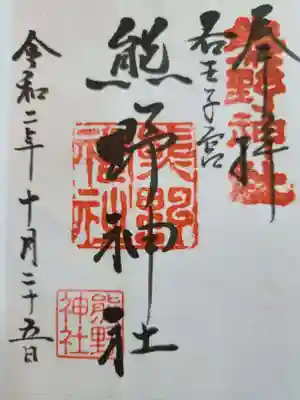 奉拝
若王子宮
熊野神社
熊野神社
令和二年十月二十五日